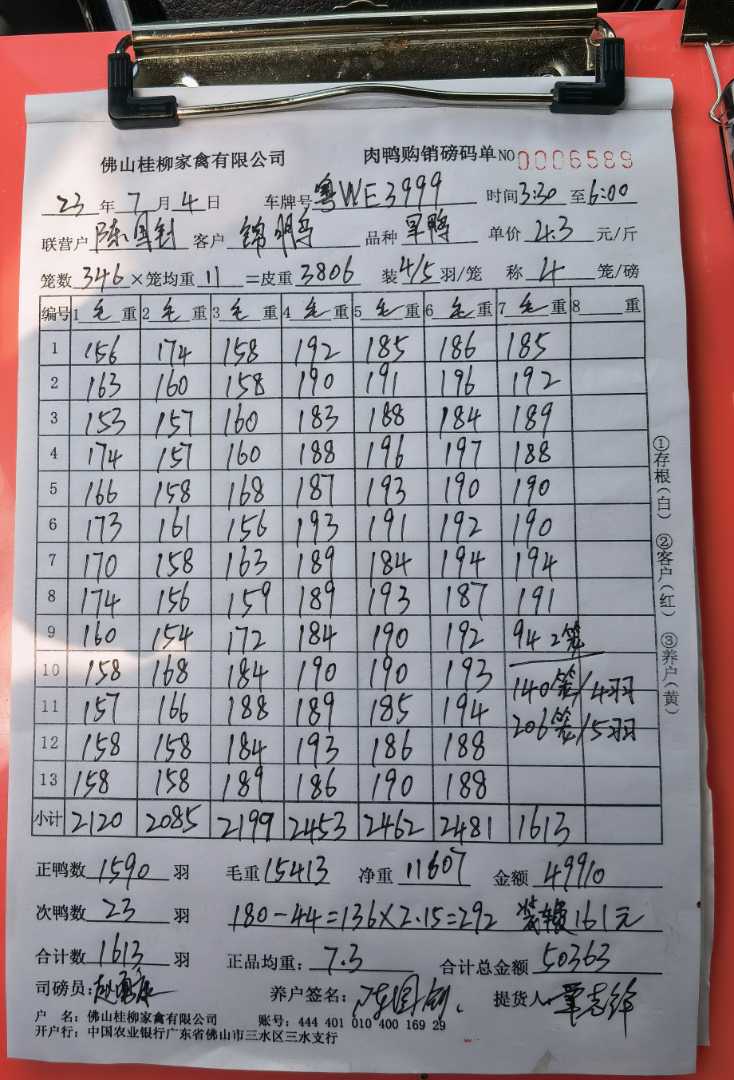 佛山桂柳家禽有限公司 肉鸭购销磅码单 NO 0006589
23 年 7 月 4 日 车牌号 粤WE3999 时间 3:30 至 6:00
联营户 陈国钊 客户 品种 单价 4.3 元/斤
笼数 346 × 笼均重 11 =皮重 3806 装 4/5 羽/笼 称 4 笼/磅
编号 1 毛 重 2 毛 重 3 毛 重 4 毛 重 5 毛 重 6 毛 重 7 毛 重 8 重
1 156 174 158 192 185 186 185
2 163 160 158 190 191 196 192
3 153 157 160 183 188 184 189
4 174 157 160 188 196 197 188
5 166 158 168 187 193 190 190
6 173 161 156 193 191 192 190
7 170 158 163 189 184 194 194
8 174 156 159 189 193 187 191
9 160 154 172 184 190 192 94 2笼
10 158 168 184 190 190 193 140笼/4羽
11 157 166 188 189 185 194 206笼/5羽
12 158 158 184 193 186 188
13 158 158 189 186 190 188
小计 2120 2085 2199 2453 2462 2481 1613
①存根(白) ②客户(红) ③养户(黄)
正鸭数 1590 羽 毛重 15413 净重 11607 金额 49910
次鸭数 23 羽 180-44=136×2.15=292 装 161元
合计数 1613 羽 正品均重: 7.3 合计总金额 50363
司磅员: 养户签名: 提货人
户 名: 佛山桂柳家禽有限公司 账号: 444 401 010 400 169 29
开户行: 中国农业银行广东省佛山市三水区三水支行